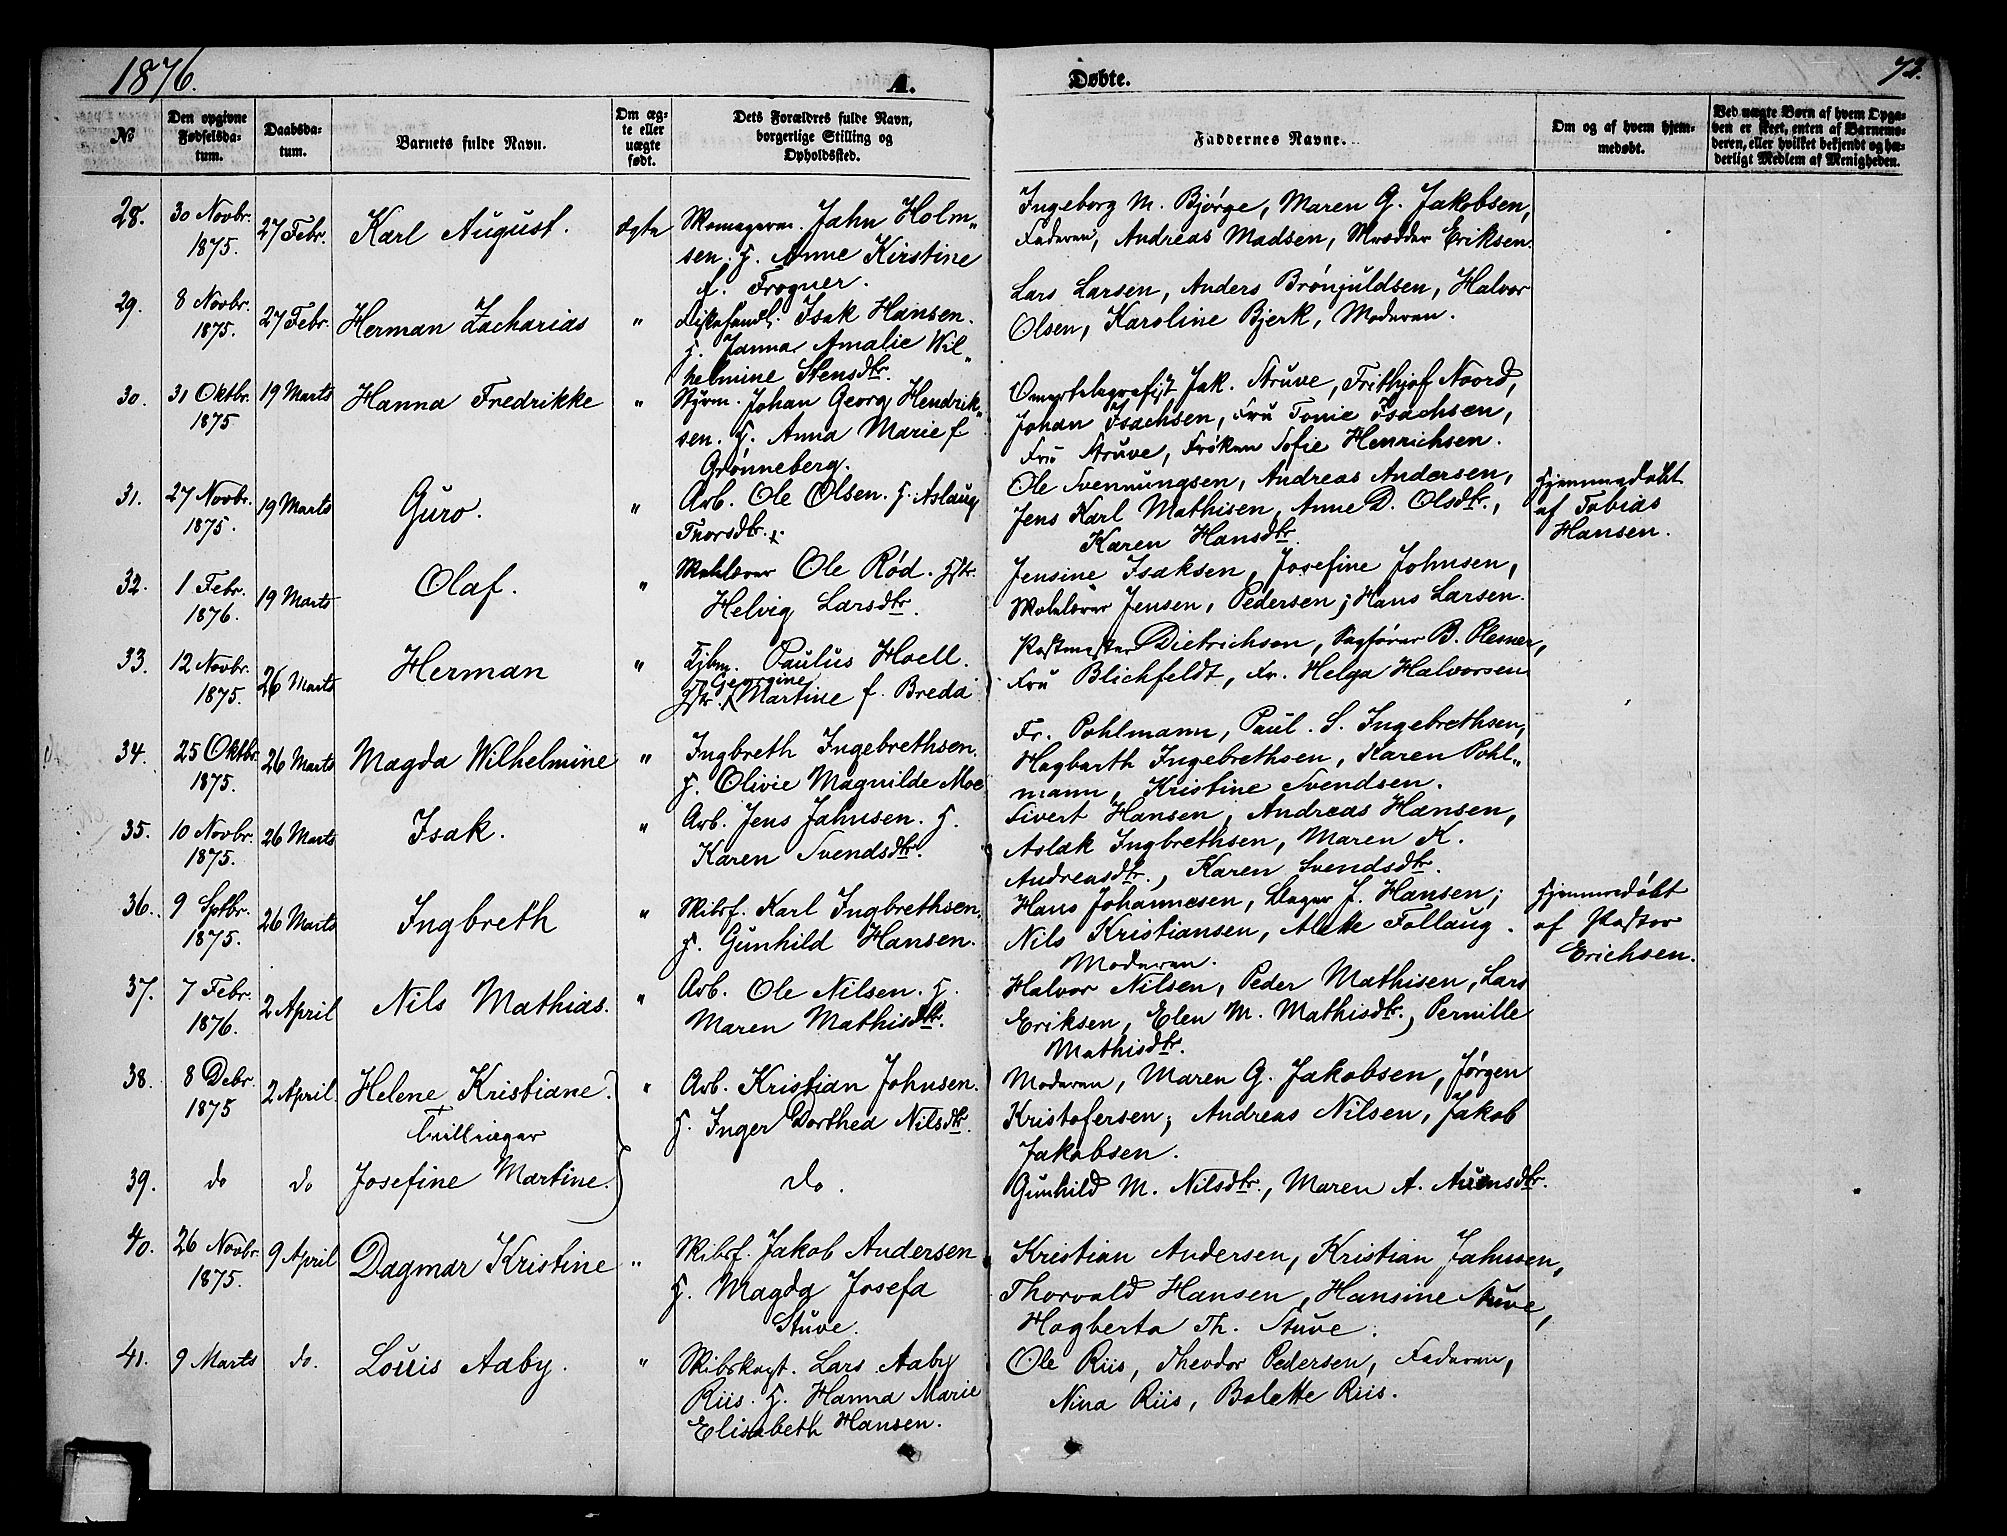 1876.
A.
Døbte.
73.
No
Den opgivne Fødselsda-tum.
Daabsda-tum.
Barnets fulde Navn.
Om æg-te eller uægte født.
Dets Forældres fulde Navn, borgerlige Stilling og Opholdssted.
Faddernes Navne.
Om og af hvem hjem-medøbt.
Ved uægte Børn af hvem Opga-ven er skeet, enten af Barnemo-deren, eller hvilket bekjendt og hæ-derligt Medlem af Menigheden.
28. 30 Novbr. 1875. 27 Febr. Karl August. ægte
Skomagersv. Jahn Holm-
sen. H. Anne Kirstine
f. Frogner.
Ingeborg M. Bjørge, Maren G. Jakobsen,
Faderen, Andreas Madsen, Skrædder Eriksen.
29. 8 Novbr. 1875. 27 Febr. Herman Zacharias "
Fiskehandl. Isak Hansen.
H. Janna Amalie Wil-
helmine Stensdtr.
Lars Larsen, Anders Brønjuldsen, Halvor
Olsen, Karoline Bjerk, Moderen.
30. 31 Oktbr. 1875 19 Marts Hanna Fredrikke "
Styrm. Johan Georg Hendrik-
sen. H. Anna Marie f
Grønneberg.
Jak. Struve, Frithjof Noord,
Johan Isachsen, Fru Tonie Isachsen,
Fru Struve, Frøken Sofie Henrichsen.
31. 27 Novbr. 1875. 19 Marts Guro. "
Arb. Ole Olsen. H. Aslaug
Thorsdtr.
Ole Svennungsen, Andreas Andersen,
Jens Karl Mathisen, Anne D. Olsdtr.,
Karen Hansdtr.
Hjemmedøbt
af Tobias
Hansen.
32. 1 Febr. 1876. 19 Marts Olaf. "
Skolelærer Ole Rød. Hstr.
Helvig Larsdtr.
Jensine Isaksen, Josefine Johnsen,
Skolelærer Jensen, Pedersen; Hans Larsen.
33. 12 Novbr. 1875. 26 Marts Herman "
Kjbm. Paulus Hoell.
Georgine
Hstr. Martine f. Breda
Postmester Dietrichson, Sagfører B. Plesner,
Fru Blichfeldt, Fr. Helga Halvorsen
34. 25 Oktbr. 1875. 26 Marts Magda Wilhelmine "
Ingbreth Ingebrethsen.
H. Olivie Magnilde Moe
Fr. Pohlmann, Paul. S. Ingebrethsen,
Hagbarth Ingebrethsen, Karen Pohl-
mann, Kristine Svendsen.
35. 10 Novbr. 1875. 26 Marts Isak. "
Arb. Jens Jahnsen. H.
Karen Svendsdtr.
Sivert Hansen, Andreas Hansen,
Aslak Ingbrethsen, Maren K.
Andreasdtr., Karen Svendsdtr.
36. 9 Sptbr. 1875. 26 Marts Ingbreth "
Skibsf. Karl Ingbrethsen.
H. Gunhild Hansen.
Hans Johannesen, J. Hansen;
Nils Kristiansen, Alette Follaug.
Moderen.
Hjemmedøbt
af Pastor
Erichsen.
37. 7 Febr. 1876. 2 April Nils Mathias. "
Arb. Ole Nilsen. H.
Maren Mathisdtr.
Halvor Nilsen, Peder Mathisen, Lars
Eriksen, Elen M. Mathisdtr., Pernille
Mathisdtr.
38. 8 Debr. 1875 2 April Helene Kristiane. "
Tvillinger
Arb. Kristian Johnsen.
H. Inger Dorthea Nilsdtr.
Moderen, Maren G. Jakobsen, Jørgen
Kristofersen; Andreas Nilsen, Jakob
Jakobsen.
39. do do Josefine Martine.
do.
Gunhild M. Nilsdtr., Maren A. Aunsdtr.
40. 26 Novbr. 1875. 9 April Dagmar Kristine "
Skibsf. Jakob Andersen
H. Magda Josefa
Stuve.
Kristian Andersen, Kristian Jahnsen,
Thorvald Hansen, Hansine Stuve,
Hagberta Th. Stuve.
41. 9 Marts do. Louis Aaby. "
Skibskapt. Lars Aaby
Riis. H. Hanna Marie
Elisabeth Hansen.
Ole Riis, Theodor Pedersen, Faderen,
Nina Riis, Bolette Riis.